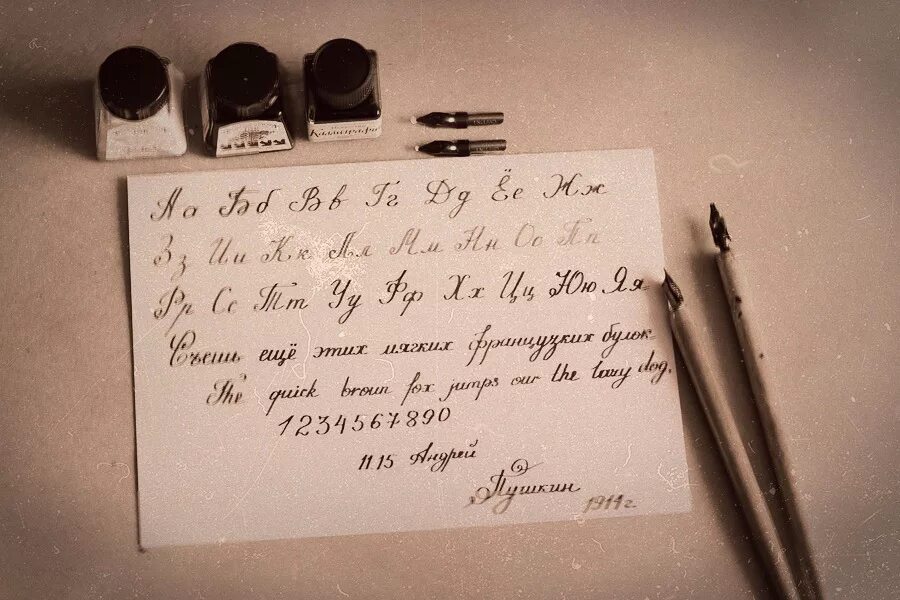 Каллиграф
Аа Бб Вв Гг Дд Ёе Жж
Зз Ии Кк Лл Мм Нн Оо Пп
Рр Сс Тт Уу Фф Хх Цц Юю Яя
Съешь ещё этих мягких французких булок
The quick broun fox jumps our the lazy dog.
1234567890
11.15 Андрей
Пушкин
1911 г.